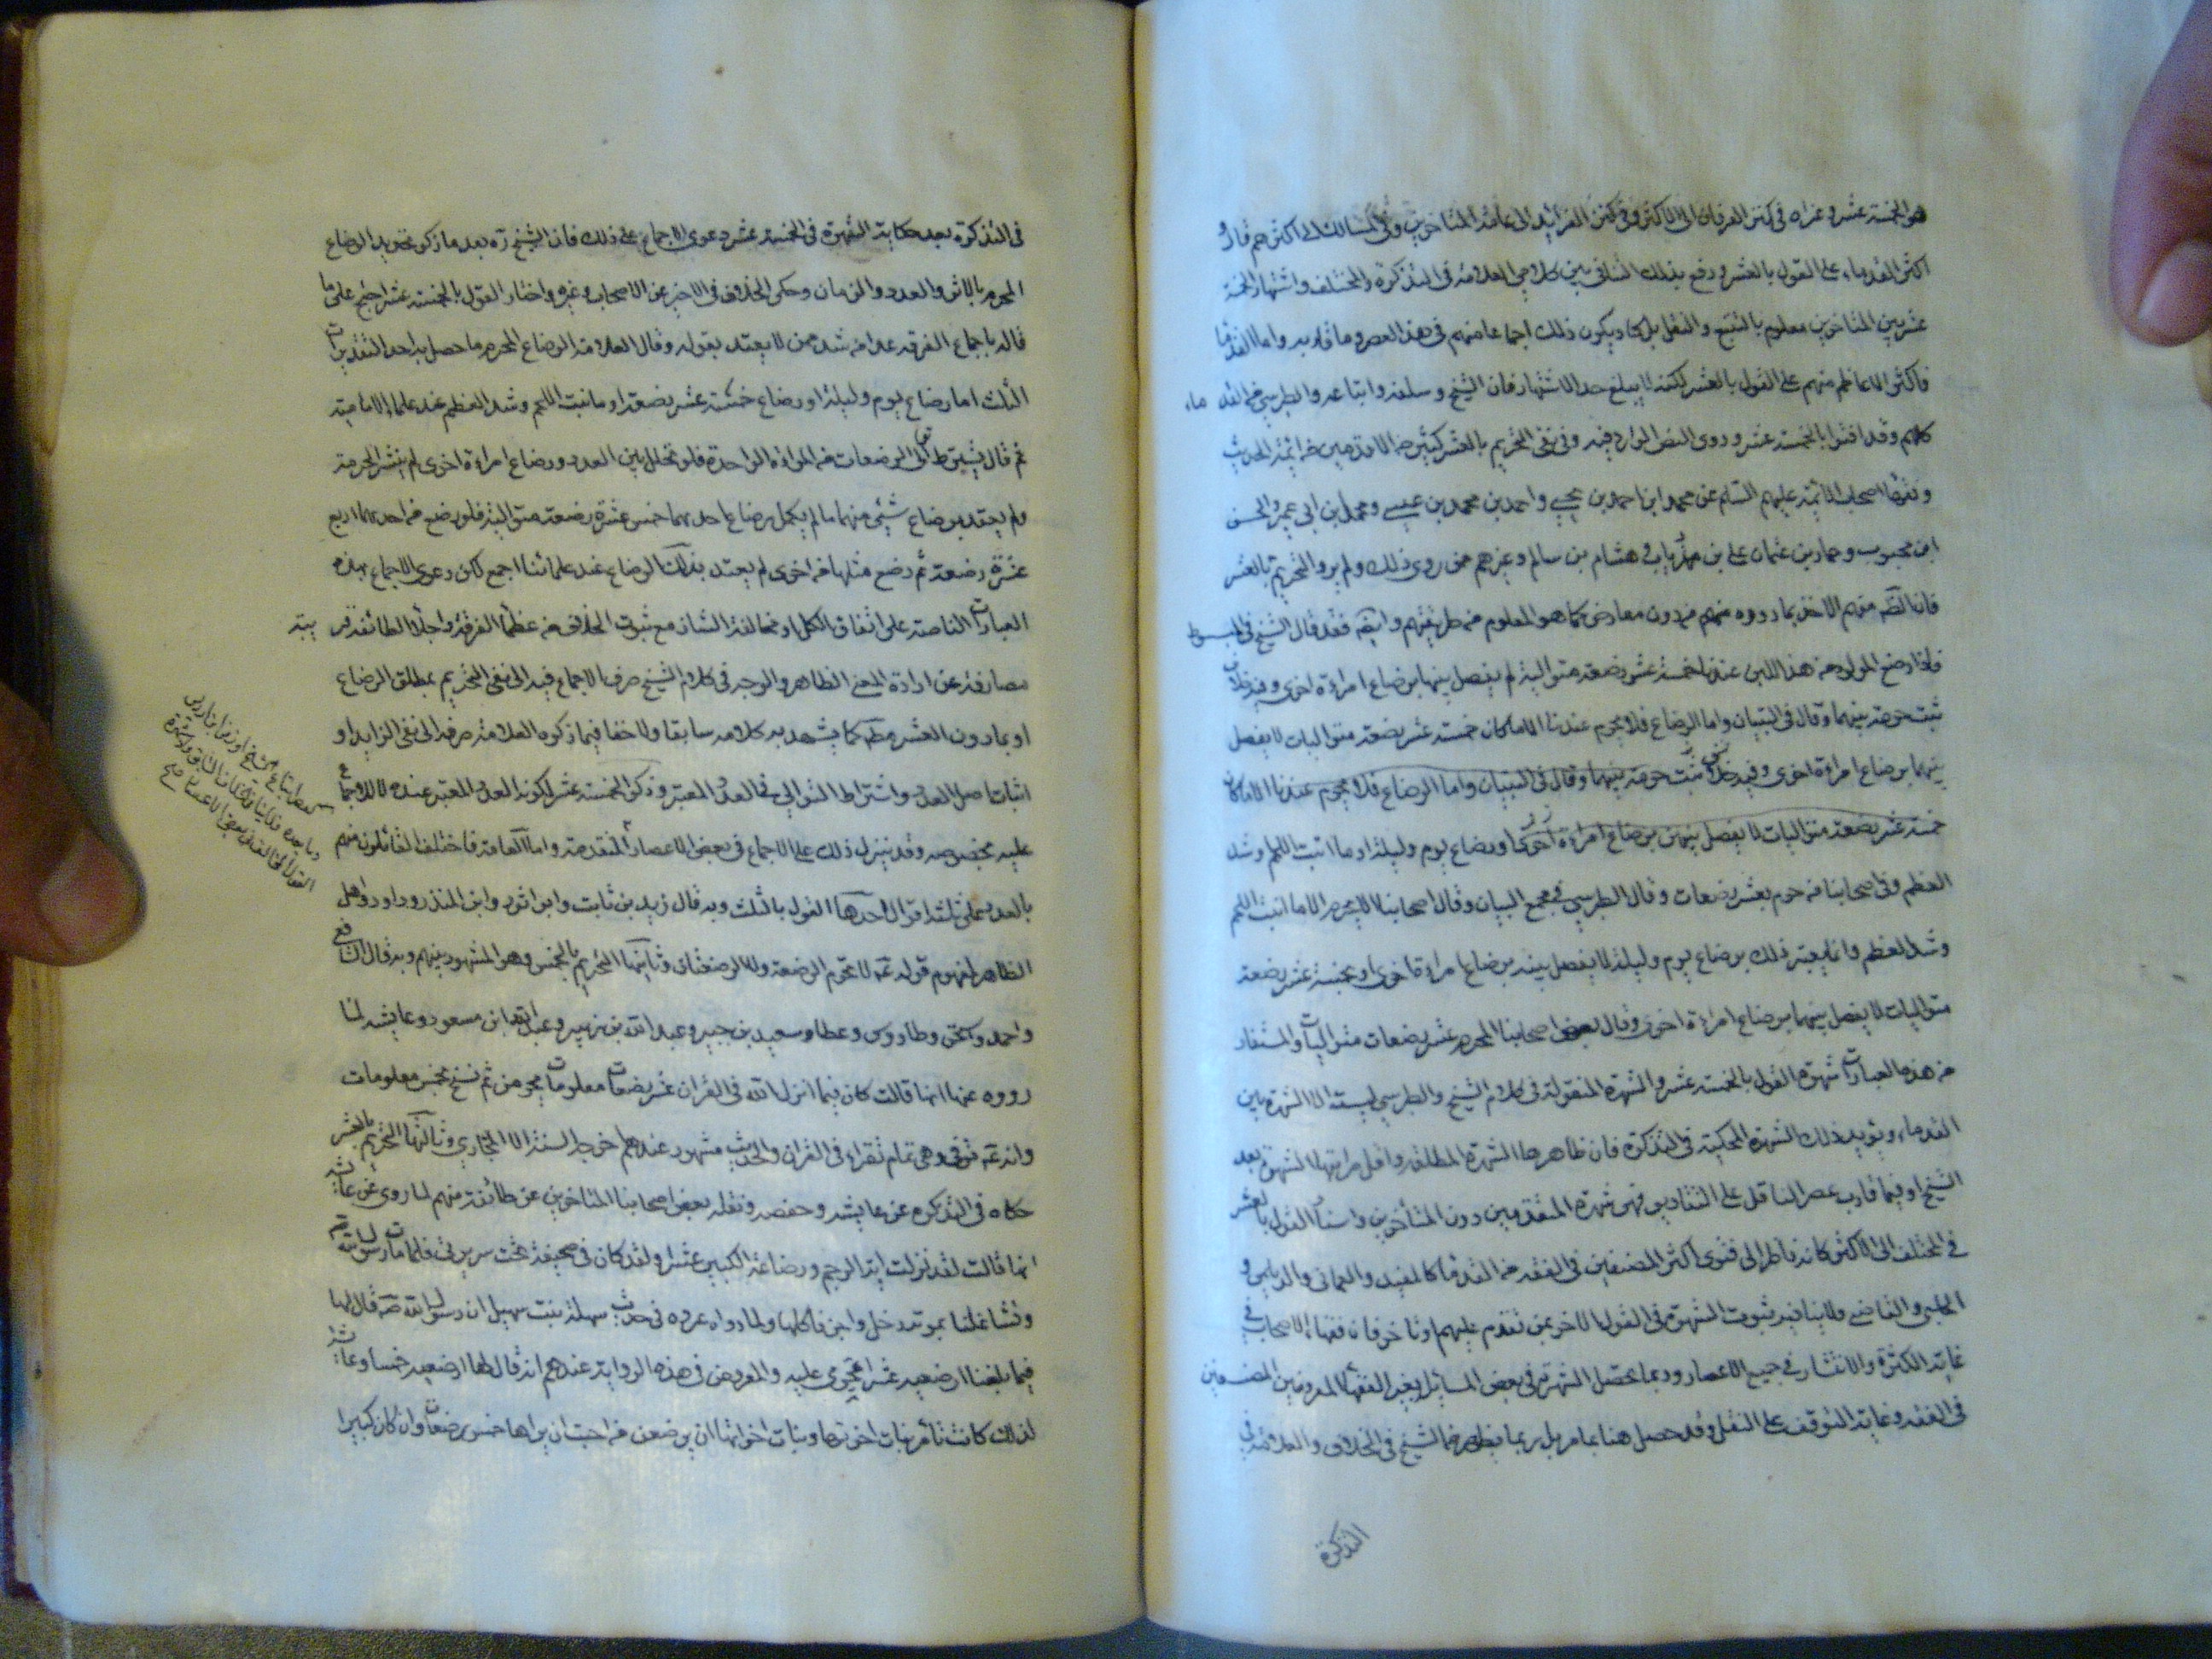 هو الخمسة عشر وعزاه في كنز العرفان الى الاكثر وفي كنز الفرائد الى عامة المتاخرين وفي المسالك الى اكثرهم قال
اكثر القدماء على القول بالعشر ودفع بذلك التنافي بين كلامي العلامة في التذكرة والمختلف واشتهار الخمسة
عشر بين المتاخرين معلوم بالتتبع والنقل بل كاد يكون ذلك اجماعا منهم في هذا العصر وما قاربه واما القدما
فاكثر الاعاظم منهم على القول بالعشر لكنه لا يبلغ حد الاشتهار فان الشيخ وسلفه واتباعه والطبرسي من القدماء
كلهم وقد افتوا بالخمسة عشر وروى النص الوارد فيه وفي نفي التحريم بالعشر كثير من الاقدمين من ائمة الحديث
و اصحاب الائمة عليهم السلم عن محمد ابن احمد بن يحيى واحمد بن محمد بن عيسى ومحمد بن ابي عمير والحسن
ابن محبوب وحماد بن عثمان علي بن مهزيار وهشام بن سالم وغيرهم ممن روى ذلك ولم يرو التحريم بالعشر
فان الظ منهم الاخذ بما رووه منهم من دون معارض كما هو المعلوم من طريقتهم وايضا فقد قال الشيخ في المبسوط
فاذا رضع المولود من هذا اللبن عندنا خمسة عشر رضعة متوالية لم يفصل بينها برضاع امراءة اخرى وفيه خلاف
ثبت حرمته بينهما وقال في التبيان واما الرضاع فلا يحرم عندنا الا ما كان خمسة عشر رضعة متواليات لا يفصل
بينهما برضاع امراءة اخرى وفيه خلاف ثبت حرمته بينهما وقال في التبيان واما الرضاع فلا يحرم عندنا الا ما كان
خمسة عشر رضعة متواليات لا يفصل بينهن برضاع امراءة اخرى او رضاع يوم وليلة او ما انبت اللحم وشد
العظم وفي اصحابنا من حرم بعشر رضعات وقال الطبرسي في مجمع البيان وقال اصحابنا لا يحرم الا ما انبت اللحم
وشد العظم وانما يعتبر ذلك برضاع يوم وليلة لا يفصل بينه برضاع امراءة اخرى او بخمسة عشر رضعة
متواليات لا يفصل بينها برضاع امراءة اخرى وقال بعض اصحابنا المحرم عشر رضعات متواليات والمستفاد
من هذه العبارات شهرة القول بالخمسة عشر والشهرة المنقولة في كلام الشيخ والطبرسي ليست الا الشهرة بين
القدماء ويؤيد ذلك الشهرة المحكية في التذكرة فان ظاهرها الشهرة المطلقة واقل مراتبها الشهرة بعد
الشيخ او فيما قارب عصر الناقل على التقادير فهو شهرة المتقدمين دون المتأخرين واسناد القول بالعشر
في المختلف الى الاكثر كانه ناظر الى فتوى اكثر المصنفين في الفقه من القدما كالمفيد والعماني والديلمي و
الحلبي والقاضي ولا ينافيه ثبوت الشهرة في القول الاخر ممن تقدم عليهم او تاخر فان فقهاء الاصحاب في
غاية الكثرة والانتشار في جميع الاعصار وربما يحصل الشهرة في بعض المسائل بغير الفقهاء المعروفين المصنفين
في الفقه وغايته التوقف على النقل وقد حصل هنا بما مر بل ربما يظهر من الشيخ في الخلاف والعلامة في
التذكرة
في التذكرة بعد حكاية الشهرة في الخمسة عشر دعوى الاجماع على ذلك فان الشيخ ره بعد ما ذكر تحديد الرضاع
المحرم بالاثر والعدد والزمان وحكى الخلاف في الاخير عن الاصحاب وغيره واختار القول بالخمسة عشر احتج على ما
قاله باجماع الفرقة عدا من شذ ممن لا يعتد بقوله وقال العلامة الرضاع المحرم ما حصل به احد التقديرات
الثلث اما رضاع يوم وليلة او رضاع خمسة عشر رضعة او ما نبت اللحم وشد العظم عند علماء الامامية
ثم قال يشترط توالي الرضعات من المراة الواحدة فلو تخلل بين العدد رضاع امراءة اخرى لم ينشر الحرمة
ولم يعتد برضاع شيء منهما ما لم يكمل رضاع احدهما خمس عشرة رضعة متوالية فلو رضع من احدهما اربع
عشرة رضعة ثم رضع مثلها من اخرى لم يعتد بذلك الرضاع عند علمائنا اجمع لكن دعوى الاجماع بهذه
العبارات الناصة على اتفاق الكل او مخالفة الشاذ مع ثبوت الخلاف من عظماء الفرقة واجلاء الطائفة قرينة
صارفة عن ارادة المعنى الظاهر والوجه في كلام الشيخ صرف الاجماع فيه الى نفي التحريم بمطلق الرضاع
او بما دون العشر مطلقا كما يشهد به كلامه سابقا ولاحقا فيما ذكره العلامة صرفه الى نفي الزايد او
اثبات اصل العدد واشتراط التوالي في العدد المعتبر وذكر الخمسة عشر لكونه العدد المعتبر عنده لا للاجماع
عليه بخصوصه وقد ينزل ذلك على الاجماع في بعض الاعصار المتقدمة واما العامة فاختلف القائلون منهم
بالعدد على ثلثة اقوال احدها القول بالثلث وبه قال زيد بن ثابت وابو ثور وابن المنذر وداود واهل
الظاهر لمفهوم قوله لا تحرم الرضعة ولا الرضعتان وثانيها التحريم بالخمس وهو المشهور بينهم وبه قال الشافعي
واحمد واسحق وطاووس وعطا وسعيد بن جبير وعبد الله بن زبير وعبد الله ابن مسعود وعايشه لما
رووه عنها انها قالت كان فيما انزل الله في القران عشر رضعات معلومات يحرمن ثم نسخ بخمس معلومات
وانه توفي وهي تقراء في القران والحديث مشهور عندهم اخرجه الستة الا البخاري وثالثها التحريم بالعشر
حكاه في التذكره عن عايشه وحفصه ونقله بعض اصحابنا المتاخرين عن طائفة منهم لما روى عن عايشه
انها قالت لقد نزلت اية الرجم ورضاعة الكبير عشرا ولقد كان في صحيفة تحت سريري فلما مات رسول الله
وتشاغلنا بموته دخل داجن فاكلها ولما رواه عروه في حديث سهلة بنت سهيل ان رسول الله ص قال لها
فيما بلغنا ارضعيه عشرا تحرمي عليه والمعروف في هذه الرواية عندهم انه قال لها ارضعيه خمسا وعايشة
لذلك كانت تأمر بنات اخوتها وبنات اخواتها ان يرضعن من احبت ان يراها خمس رضعات وان كان كبيرا